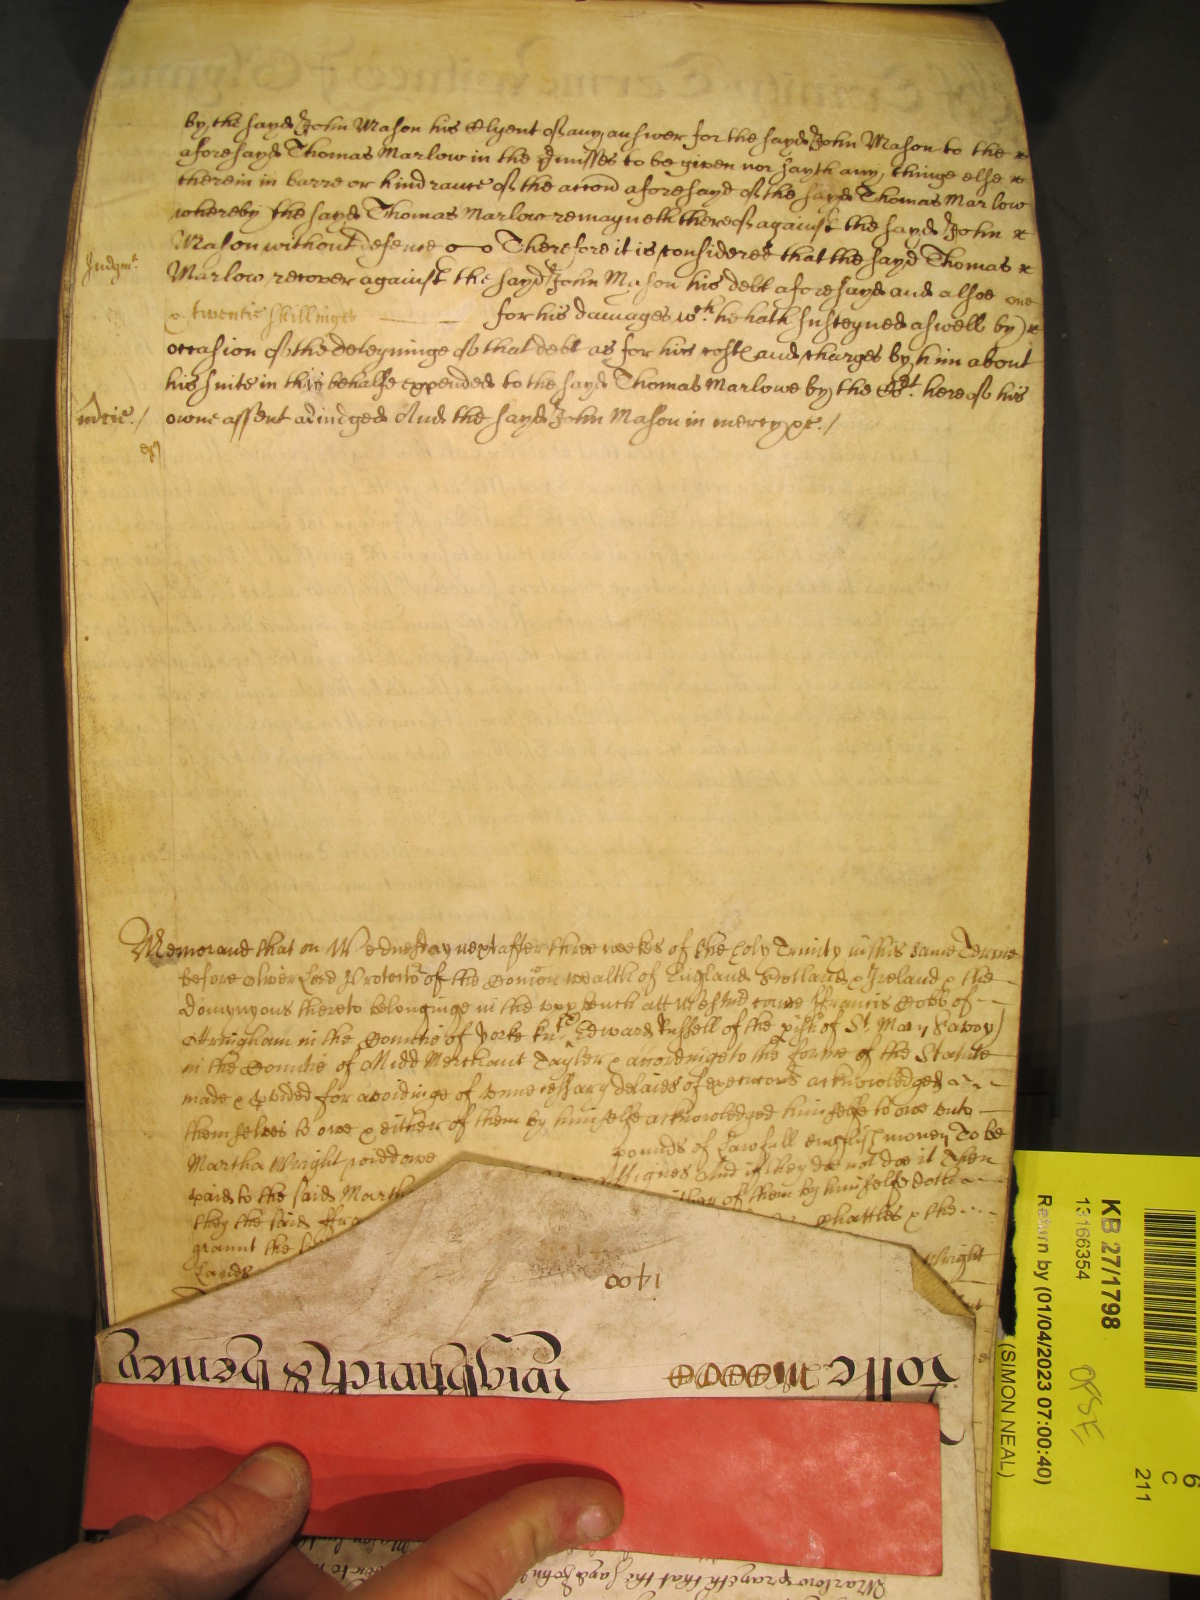 by the sayd John Mason his Clyent of any answer for the sayd John Mason to the
aforesayd Thomas Marlow in the p̄misses to be given nor sayth any thinge else
therein in barre or hindrance of the accōn aforesayd of the sayd Thomas Marlow
whereby the sayd Thomas Marlow remayneth thereof against the sayd John
Mason without defence Therefore it is considered that the sayd Thomas
Judgmt
Marlow recover against the sayd John Mason his debt aforesayd and alsoe one
& twentie shillinges for his damages wch he hath susteyned aswell by
occasion of the deteyninge of that debt as for his costs and charges by him about
his suite in this behalfe expended to the sayd Thomas Marlowe by the Cort here of his
mcie./
owne assent adiudged And the sayd John Mason in mercy &c./
Memorand that on Wednesday next after three weekes of the holy Trinity in this same Terme
before Oliver Lord Protector of the Comōn wealth of England Scotland & Ireland & the
Domynyons thereto belonginge in the upp bench att Westmr came ffrancis Cobb of
Ottringham in the Countie of Yorke Knt & Edward Russell of the pish of St. Mary Savoy
in the Countie of Midd Merchant Tayler & accordinge to the forme of the Statute
made & pvided for avoidinge of unnecessary delaies of execucons acknowledged
themselves to owe & either of them by himselfe acknowledged himselfe to owe unto
Martha Wright widdowe pounds of Lawfull english money To be
paid to the said Marth Assignes And if they doe not doe it Then
they the said ffra of them by himselfe doth
graunt the chattles & the
Lands Wright
1400
Rolle
Wightwick & Henley
KB 27/1798
13166354
Return by (01/04/2023 07:00:40)
(SIMON NEAL)
6
C
211
Marlow prayeth that the sayd John